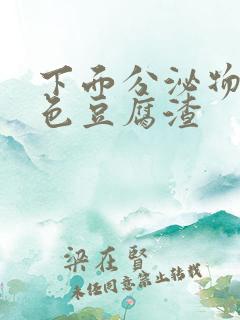 下而分泌物
色豆腐渣
梁在贤
未经同意禁止转载